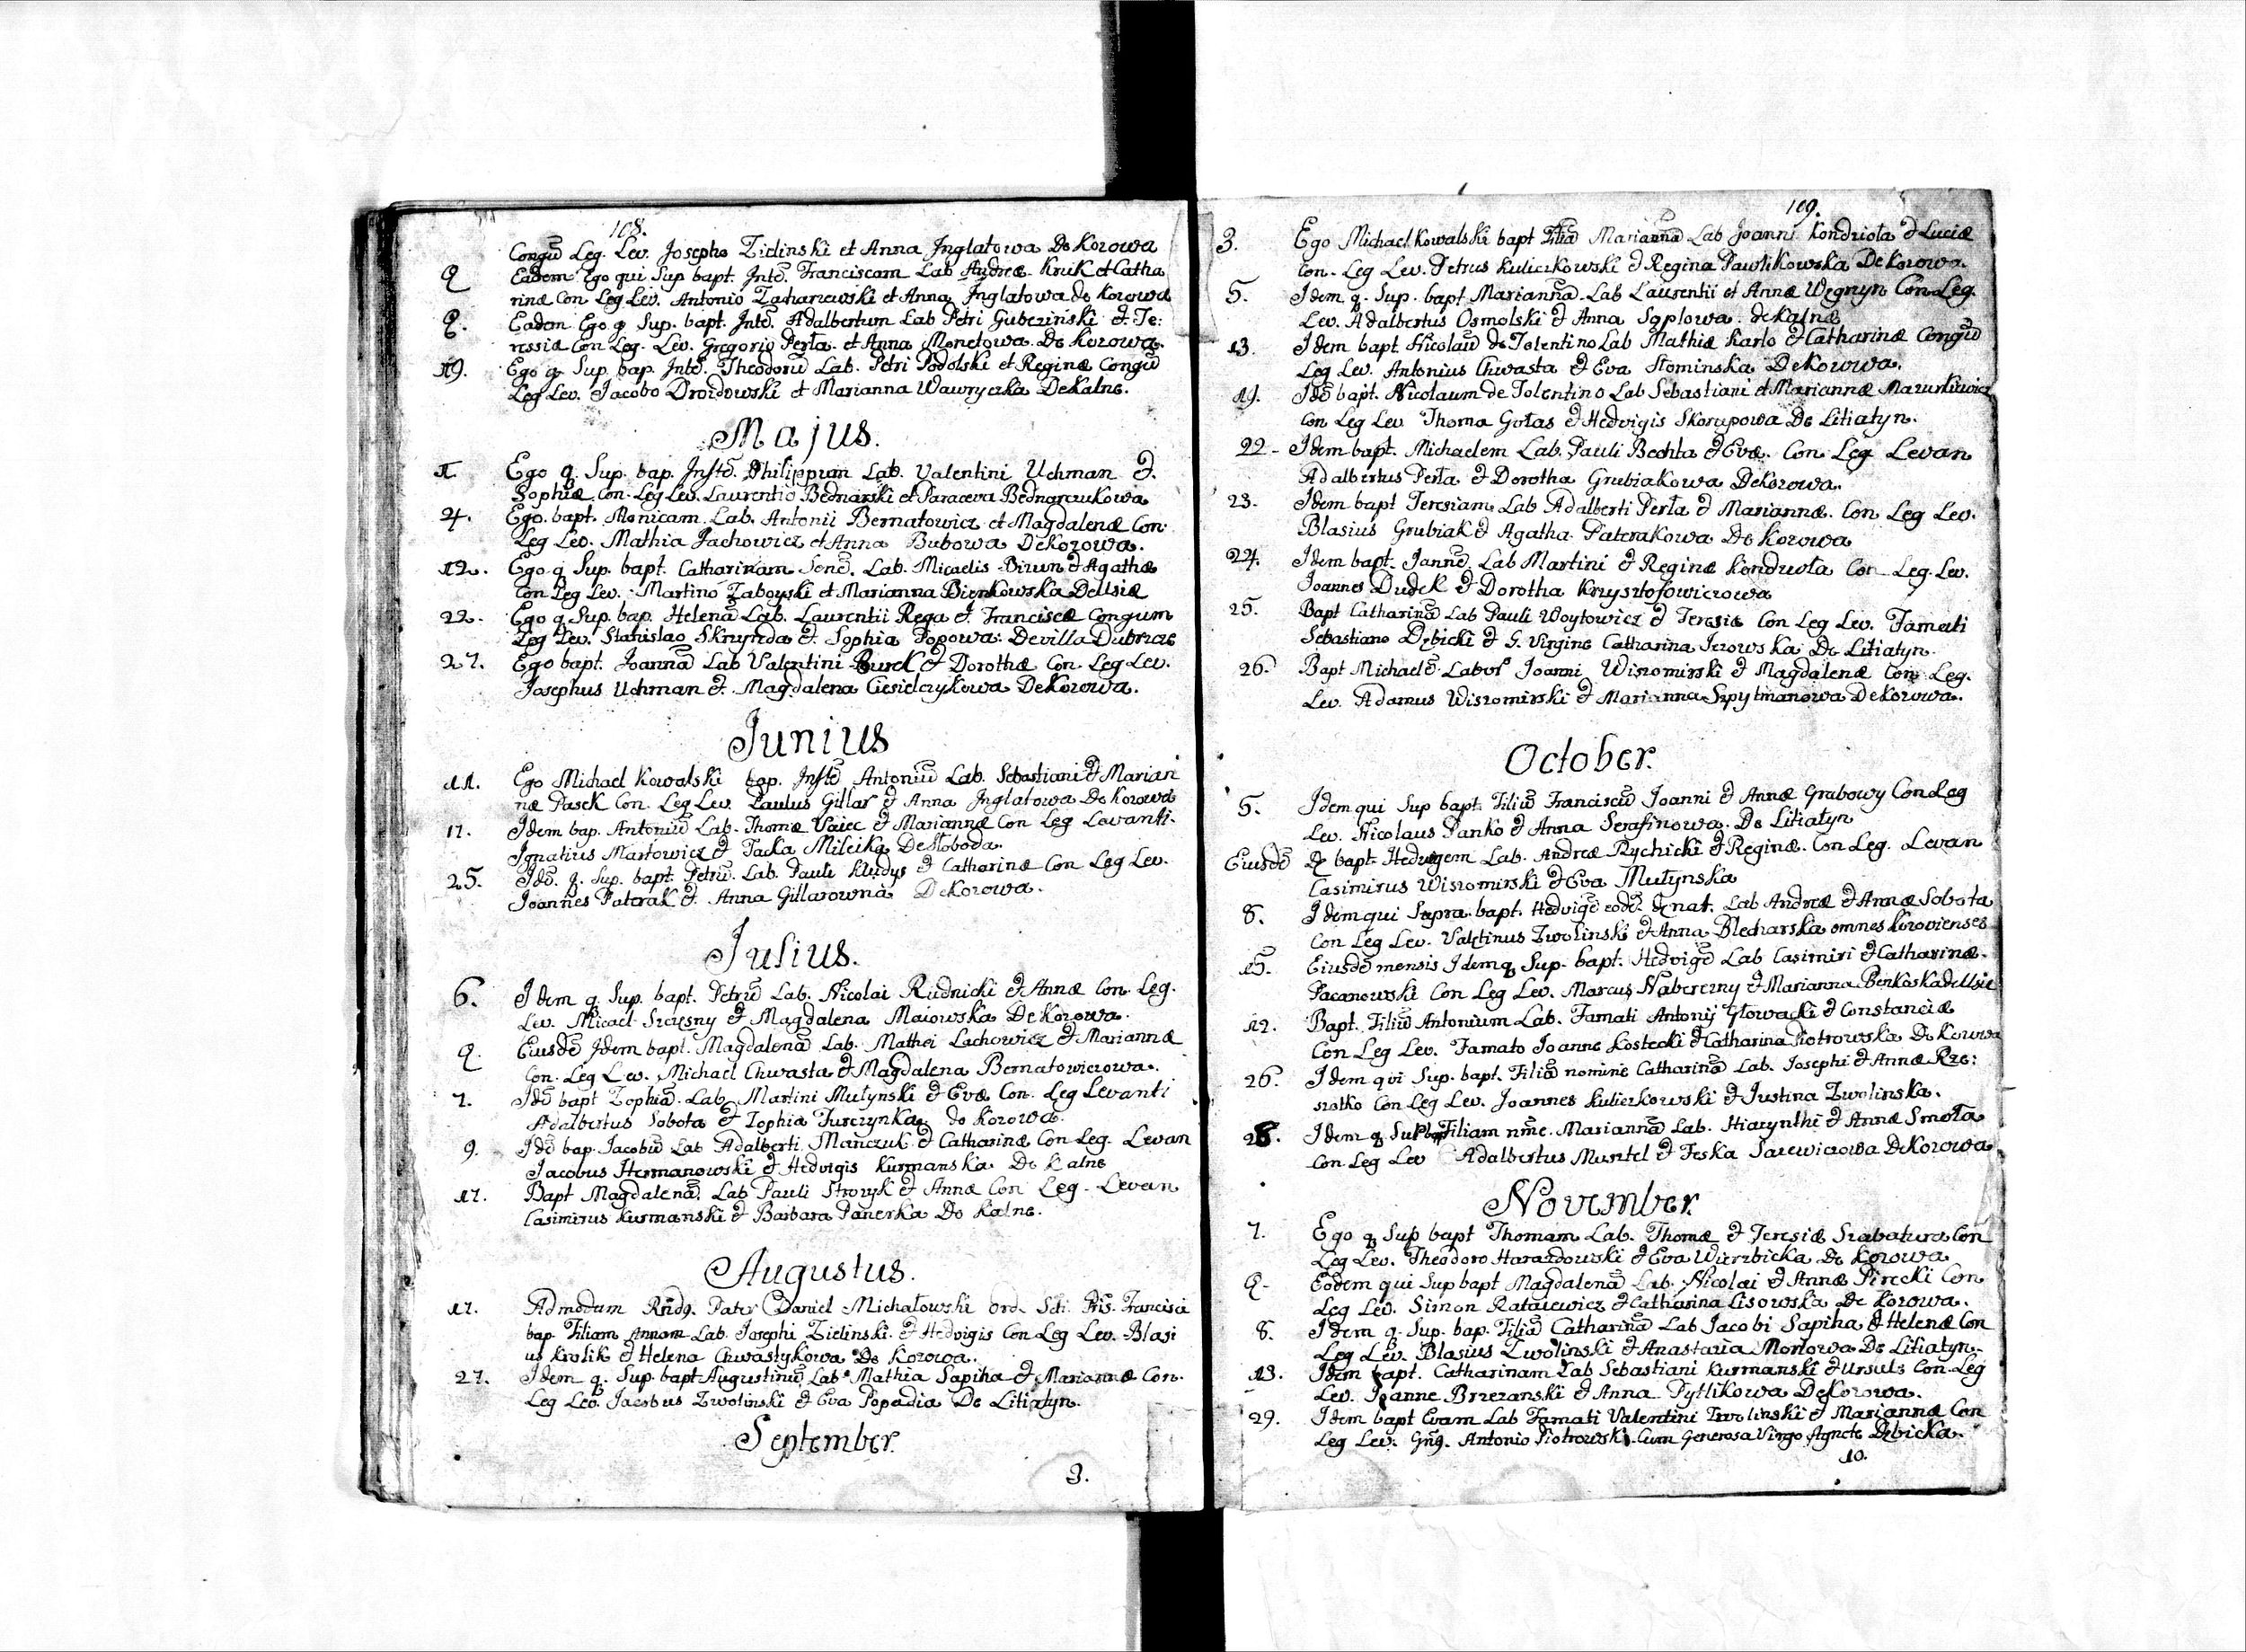 108.
Congũ Leg. Lev. Josepho Zielinski et Anna Inglatowa De Kozowa
Q Eadem Ego qui Sup bapt. Intẽ. Franciscam Lab Andreæ Kruk et Catha
rinæ Con Leg Lev. Antonio Zacharzewski et Anna Inglatowa de Kozowa
Q. Eadem Ego q Sup. bapt. Intẽ. Adalbertum Lab Petri Gubczinski & Te:
ressiæ Con Leg. Lev. Gregorio Perła et Anna Monetowa De Kozowa.
19. Ego q Sup. bap. Intẽ. Theodorũ Lab. Petri Podolski et Reginæ Congũ
Leg Lev. Jacobo Drozdowski et Marianna Wawryczka De Kalne.
Majus.
1. Ego q. Sup. bap. Instẽ. Philippum Lab. Valentini Uchman &.
Sophiæ Con. Leg Lev. Laurentio Bednarski et Paraceva Bednarczukowa
4. Ego bapt. Monicam Lab. Antonii Bernatowicz et Magdalenæ Con.
Leg Lev. Mathia Jachowicz et Anna Bubowa De Kozowa.
12. Ego q Sup. bapt. Catharinam Lab. Micaelis Birun & Agathæ
Con Leg Lev. Martino Zaboyski et Marianna Bienkowska De Usiæ
22. Ego q Sup. bap. Helenã Lab. Laurentii Rega &. Franciscæ Congum
Leg Lev. Stanislao Skrzynda &. Sophia Popowa. De villa Dubrzcze
27. Ego bapt. Joannã Lab Valentini Burek & Dorothæ Con. Leg Lev.
Josephus Uchman &. Magdalena Ciesielczykowa De Kozowa.
Junius
11. Ego Michael Kowalski bap. Instẽ Antoniũ Lab. Sebastiani & Marian
næ Pasek Con. Leg Lev. Paulus Gillar & Anna Inglatowa De Kozowa
17. Idem bap. Antoniũ Lab. Thomæ Vaiec & Mariannæ Con Leg Levanti.
Ignatius Martowicz & Tacka Mileika De Słoboda.
25. Idẽ. q. Sup. bapt. Petrũ. Lab. Pauli Kłudys & Catharinæ Con Leg Lev.
Joannes Paterak &. Anna Gillarowna De Kozowa.
Julius.
6. Idem q. Sup. bapt. Petrũ Lab. Nicolai Rudnicki & Annæ Con. Leg.
Lev. Micael Szczęsny & Magdalena Maiowska De Kozowa.
Q. Eiusdẽ Idem bapt. Magdalenã Lab. Mathei Lachowicz & Mariannæ
Con. Leg Lev. Michael Chwasta & Magdalena Bernatowiczowa.
7. Idẽ bapt Zophiã. Lab. Martini Mułynski & Evæ Con. Leg Levanti
Adalbertus Sobota & Zophia Furczynka de Kozowa.
9. Idẽ bap. Jacobũ Lab Adalberti Manczuk & Catharinæ Con Leg. Levan
Jacobus Hermanowski & Hedvigis Kurmanska De Kalne
17. Bapt Magdalenã. Lab Pauli Strozyk & Annæ Con Leg. Levan
Casimirus Kurmanski & Barbara Panerka De Kalne.
Augustus.
17. Admodum Rñdq. Pater Daniel Michałowski Ord. Scti. Pris. Francisci
bap Filiam Annam Lab. Josephi Zielinski & Hedvigis Con Leg Lev. Blasi
us Krolik & Helena Chwastykowa De Kozowa.
27. Idem q. Sup. bapt Augustinũ Lab. Mathia Sapiha & Mariannæ Con.
Leg Lev. Jacobus Zwolinski & Eva Popadia De Litiatyn.
September.
3.
109.
3. Ego Michael Kowalski bapt Filiã Mariannã Lab Joanni Kondziola & Luciæ
Con. Leg Lev. Petrus Kuliczkowski & Regina Pawlikowska De Kozowa.
5. Idem q. Sup. bapt Mariannã Lab Laurentii et Annæ Węgrzyn Con Leg.
Lev. Adalbertus Osmolski & Anna Soplowa. de Kalne
13. Idem bapt. Nicolaũ de Tolentino Lab Mathiæ Karlo & Catharinæ Congũ
Leg Lev. Antonius Chwasta & Eva Słominska De Kozowa.
19. Idẽ bapt. Nicolaum de Tolentino Lab Sebastiani et Mariannæ Mazurkiewicz
Con Leg Lev Thoma Gołas & Hedvigis Skorupowa De Litiatyn.
22. Idem bapt. Michaelem Lab. Pauli Bechta & Evæ. Con Leg Levan
Adalbertus Perła & Dorotha Grubiakowa De Kozowa.
23. Idem bapt Teresiam Lab Adalberti Perła & Mariannæ. Con Leg Lev.
Blasius Grubiak & Agatha Paterakowa De Kozowa
24. Idem bapt. Lab Martini & Reginæ Kondziola Con Leg. Lev.
Joannes Dudek & Dorotha Krzysztofowiczowa
25. Bapt Catharinã Lab Pauli Woytowicz & Teresiæ Con Leg Lev. Famati
Sebastiano Dębicki & G. Virgine Catharina Jezowska De Litiatyn.
26. Bapt Michaelẽ. Labor Joanni Wiszomirski & Magdalenæ Con Leg.
Lev. Adamus Wiszomirski & Marianna Szpytmanowa De Kozowa.
October.
5. Idem qui Sup bapt. Filiũ Franciscũ Joanni & Annæ Grabowy Con Leg
Lev. Nicolaus Panko & Anna Serafinowa. De Litiatyn
Eiusdẽ Q bapt. Hedvigem Lab. Andreæ Rychicki & Reginæ. Con Leg. Levan
Casimirus Wiszomirski & Eva Mułynska
8. Idem qui Supra bapt. Hedvigẽ eodẽ. nat. Lab Andreæ & Annæ Sobota
Con Leg Lev. Valętinus Zwolinski & Anna Blecharska omnes Kozovienses
15. Eiusdẽ mensis Idem q Sup. bapt. Hedvigẽ Lab Casimiri & Catharinæ.
Pacanowski Con Leg Lev. Marcus Naberezny & Marianna Benkoska de Usie
12. Bapt. Filiũ Antonium Lab. Famati Antonij Głowacki & Constanciæ
Con Leg Lev. Famato Joanne Kostecki & Catharina Piotrowska De Kozowa
26. Idem qui Sup. bapt. Filiã nomine Catharinã Lab. Josephi & Annæ Rze:
szotko Con Leg Lev. Joannes Kuliczkowski & Justina Zwolinska.
28. Idem q. Sup bap Filiam nme. Mariannã Lab. Hiacynthi & Annæ Smoła
Con. Leg Lev Adalbertus Musztel & Feska Sacewiczowa De Kozowa
November.
7. Ego q Sup bapt Thomam Lab. Thomæ & Teresiæ Szabatura Con
Leg Lev. Theodoro Harazdowski & Eva Wierzbicka De Kozowa
Q. Eodem qui Sup bapt Magdalenã Lab. Nicolai & Annæ Pirecki Con
Leg Lev. Simon Rataiewicz & Catharina Lisowska De Kozowa.
8. Idem q. Sup. bap. Filiã Catharinã Lab Jacobi Sapiha & Helenæ Con
Leg Lev. Blasius Zwolinski & Anastazia Mortowa De Litiatyn.
13. Idem bapt. Catharinam Lab Sebastiani Kurmanski & Ursulæ Con Leg
Lev. Joanne Brzezanski & Anna Pytlikowa De Kozowa.
29. Idem bapt Evam Lab Famati Valentini Zwolinski & Mariannæ Con
Leg Lev. Gñq. Antonio Piotrowski. Cum Generosa Virgo Agnete Dębicka.
10.